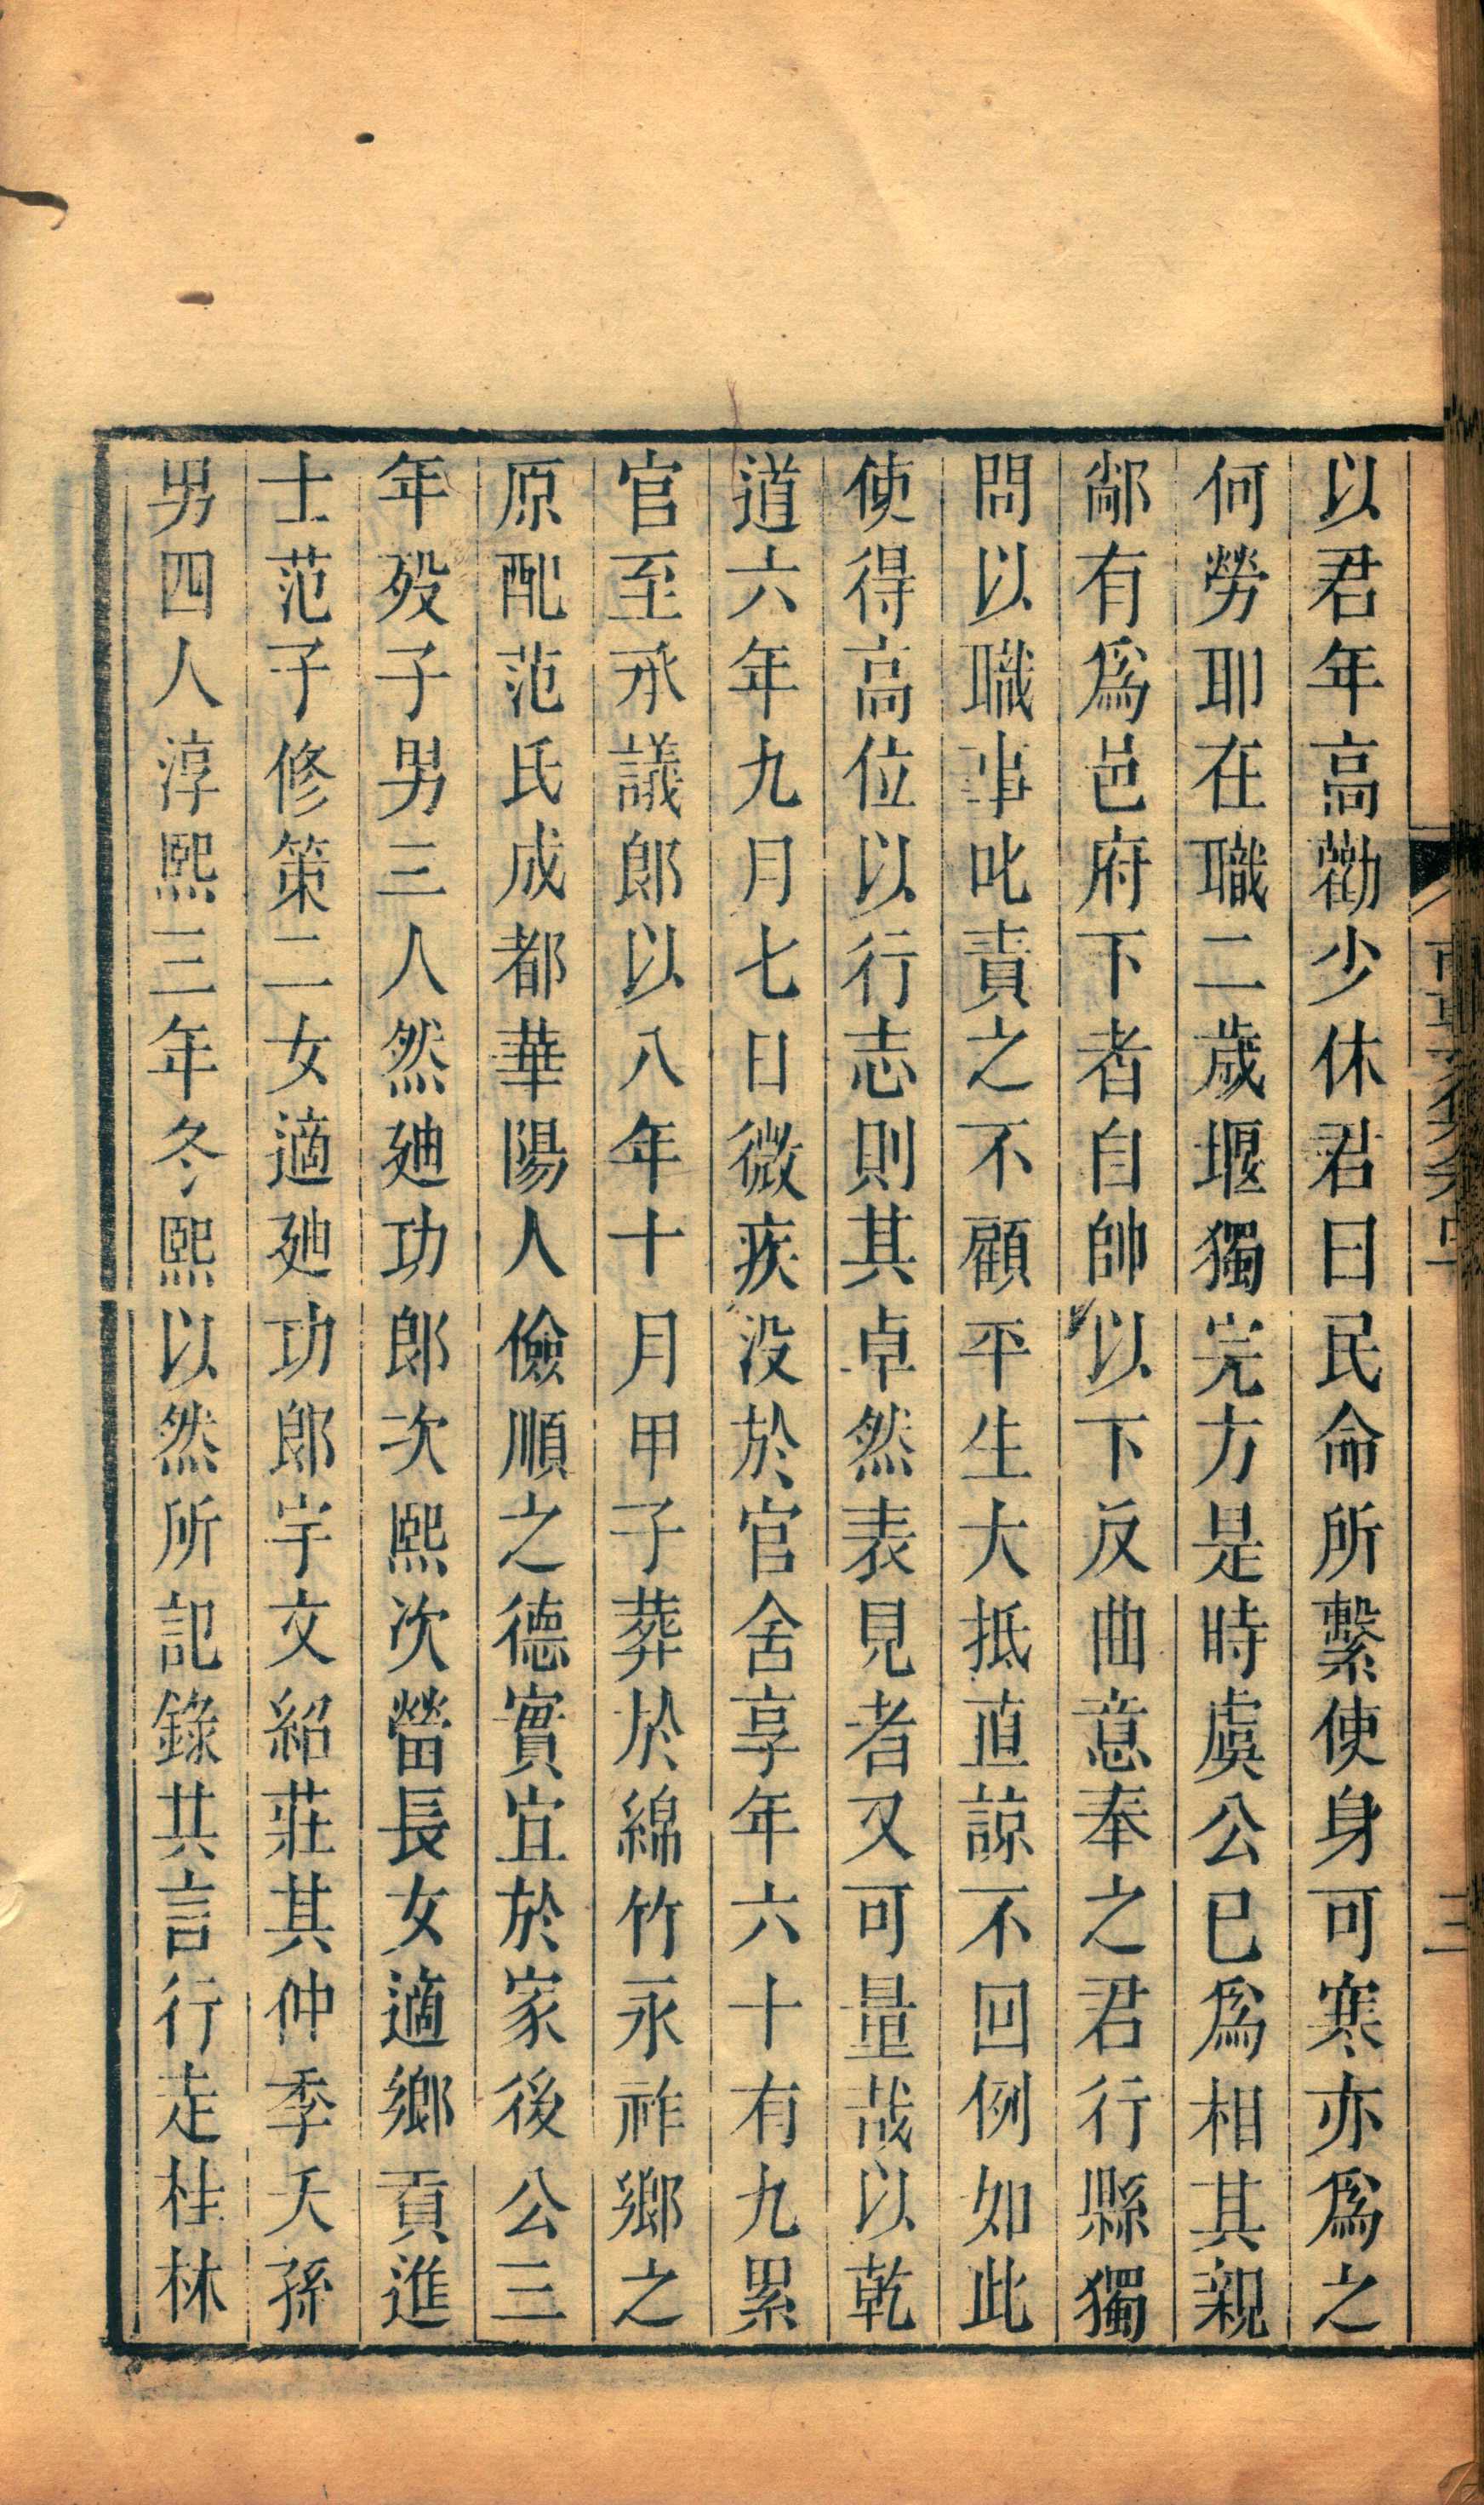 以君年高勸少休君曰民命所繫使身可寒亦爲之
何勞耶在職二歲堰獨完方是時虞公已爲相其親
鄰有爲邑府下者自帥以下反曲意奉之君行縣獨
問以職事叱責之不顧平生大抵直諒不回例如此
使得高位以行志則其卓然表見者又可量哉以乾
道六年九月七日微疾没於官舍享年六十有九累
官至承議郎以八年十月甲子葬於綿竹永祚鄉之
原配范氏成都華陽人儉順之德實宜於家後公三
年歿子男三人然廸功郎次熙次當長女適鄉貢進
士范子修策二女適廸功郎宇文紹莊其仲季夭孫
男四人淳熙三年冬熙以然所記錄其言行走桂林
三